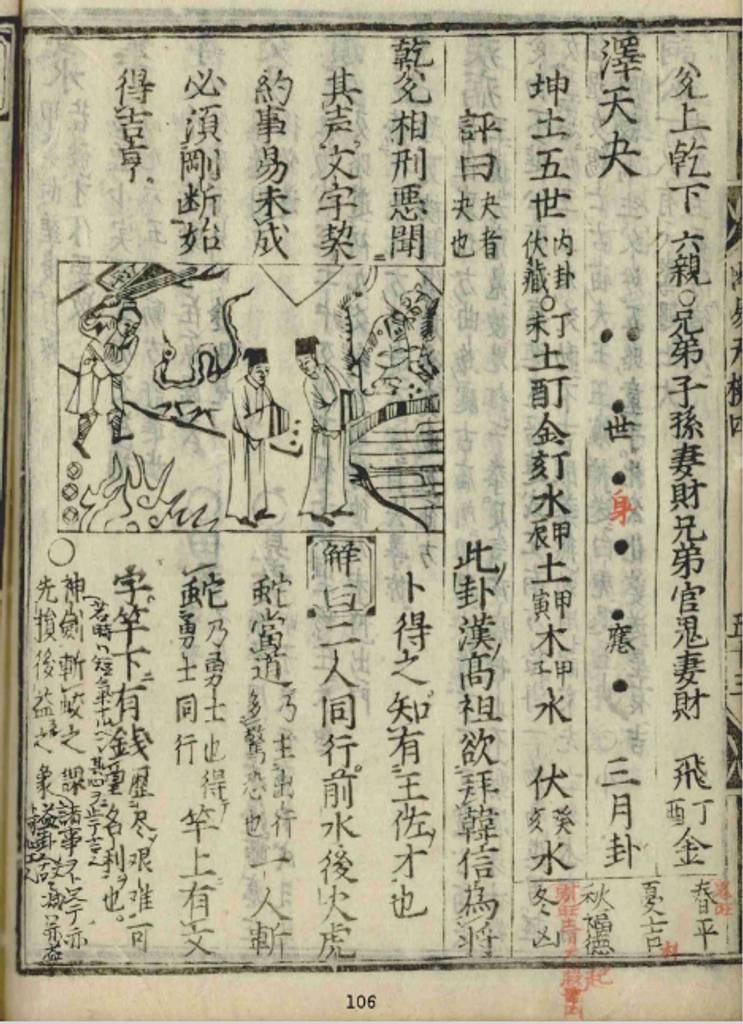 兌上乾下 六親○兄弟子孫妻財兄弟官鬼妻財 飛丁酉金
春平
夏吉
秋福德
冬凶
澤天夬
世
身
應
三月卦
坤土五世 內卦伏藏○丁未土丁酉金丁亥水甲辰土甲寅木甲子水 伏癸亥水
評曰 夬者夬也
此卦漢高祖欲拜韓信為將
乾兌相刑悪聞
卜得之知有王佐才也
其声文字契
解曰二人同行前水後火虎
約事易未成
蛇當道 乃主出行多驚恐也 一人斬
必須剛断始
蛇 乃勇士也得勇士同行 竿上有文
得吉亨
字竿下有錢 歷尽艰难可望名利也
神劍斬蛟之課
先損後益之象
106